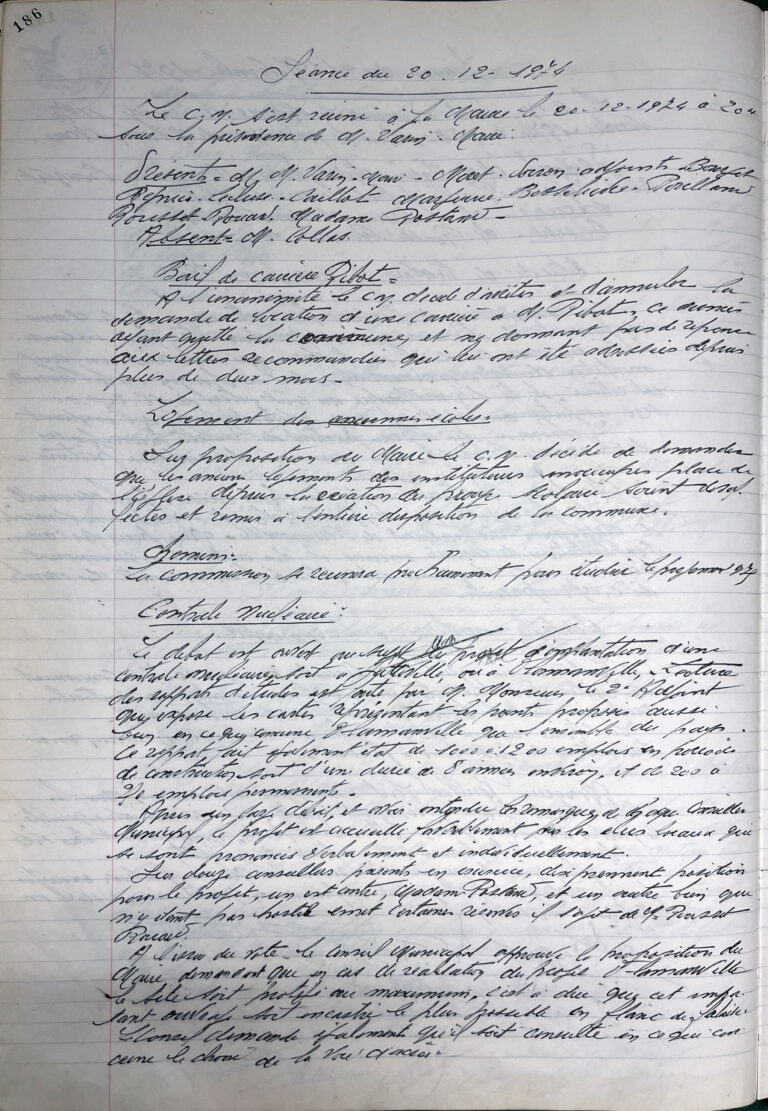 186
Séance du 20-12-1974
Le C.M. s'est réuni à la Mairie le 20-12-1974 à 20h
sous la présidence de M. Varin - Maire.
Présents = M. M. Varin - Maire - adjoints
Madame Fostané -
Absent = M. Collas.
Bail de carrière Ribot =
A l'unanimité le C.M. décide et d'annuler la
demande de location d'une carrière à M. Ribot, ce dernier
ayant quitté la commune, et ne donnant pas de réponse
aux lettres recommandées qui lui ont été adressées depuis
plus de deux mois -
Logement des anciennes écoles =
Sur proposition du Maire le C.M. décide de demander
que les anciens logements des instituteurs inoccupés place de
l'Eglise depuis la création du groupe scolaire soient désaf
fectés et remis à l'entière disposition de la commune.
Chemins =
La commission se réunira prochainement pour étudier le programme 1975
Centrale Nucléaire :
Le débat est ouvert au sujet du projet d'implantation d'une
centrale nucléaire soit à ou à Flamanville. Lecture
des rapports d'études est faite par M. le 2e Adjoint
qui expose les cartes représentant les points proposés aussi
bien en ce qui concerne Flamanville que l'ensemble du pays.
Ce rapport fait également état de 1000 à 1200 emplois en période
de construction soit d'une durée de 8 années environ, et de 200 à
emplois permanents.
Après un large débat, et avoir entendu les remarques de chaque Conseiller
Municipal, le projet est accueilli favorablement par les élus locaux qui
se sont prononcés verbalement et individuellement.
Sur douze conseillers présents en exercice, dix prennent position
pour le projet, un est contre, Madame Fostané, et un autre bien que
n'y étant pas hostile émet certaines réserves il s'agit de M. Rousset
A l'issue du vote le Conseil Municipal approuve la proposition du
Maire demandant que en cas de réalisation du projet Flamanville
le site soit protégé au maximum, c'est à dire que cet impor
tant ouvrage soit encastré le plus possible en flanc de falaise.
Le Conseil demande également qu'il soit consulté en ce qui con
cerne le choix de la voie d'accès =